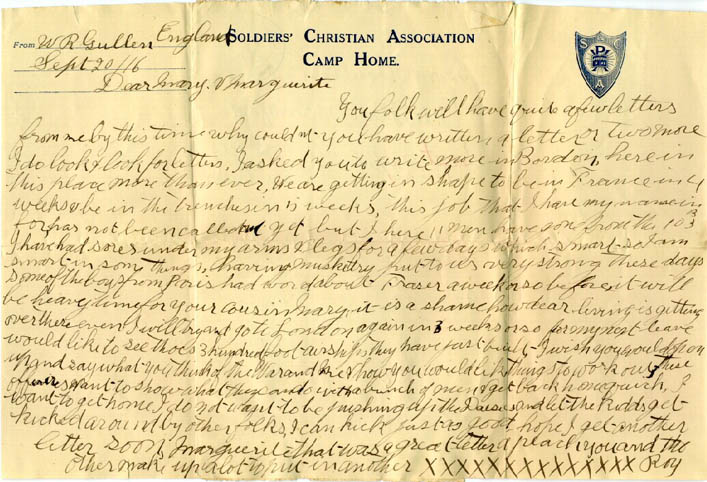 From W R Gullen England
SOLDIERS' CHRISTIAN ASSOCIATION
CAMP HOME.
S C A A
Sept 20/16
Dear Mary & Marguerite
You folk will have quite a few letters
from me by this time why could not you have written a letter or two more
I do look & look for letters, I asked you to write more in Bordon, here in
this place more than ever, we are getting in shape to be in France in 4
weeks & be in the trenches in 15 weeks, this job that I have my name in
for has not been called out yet but I here 11 men have gone from the 103
I have had sores under my arms & legs for a few days which smart so I am
smart in som things, having musketry put to us very strong these days
some of the boys from Paris had word about Fraser a week or so before it will
be heavy time for your cousin Mary, it is a shame how dear living is getting
over there even I will try and go to London again in 3 weeks or so for my next leave
would like to see thoes 3 hundred foot airships they have just built I wish you would open
up and say what you think of the War and the how you would like things to work out thee
officers want to show what they can do with a bunch of men & get back home quick, I
want to get home I do not want to be pushing up the Daises and let the kidds get
kicked around by other folks, I can kick just as good, hope I get another
letter soon, Marguerite that was a great letter a peach, you and the
other make up a lot to put in another XXXXXXXXXXXXXX Roy